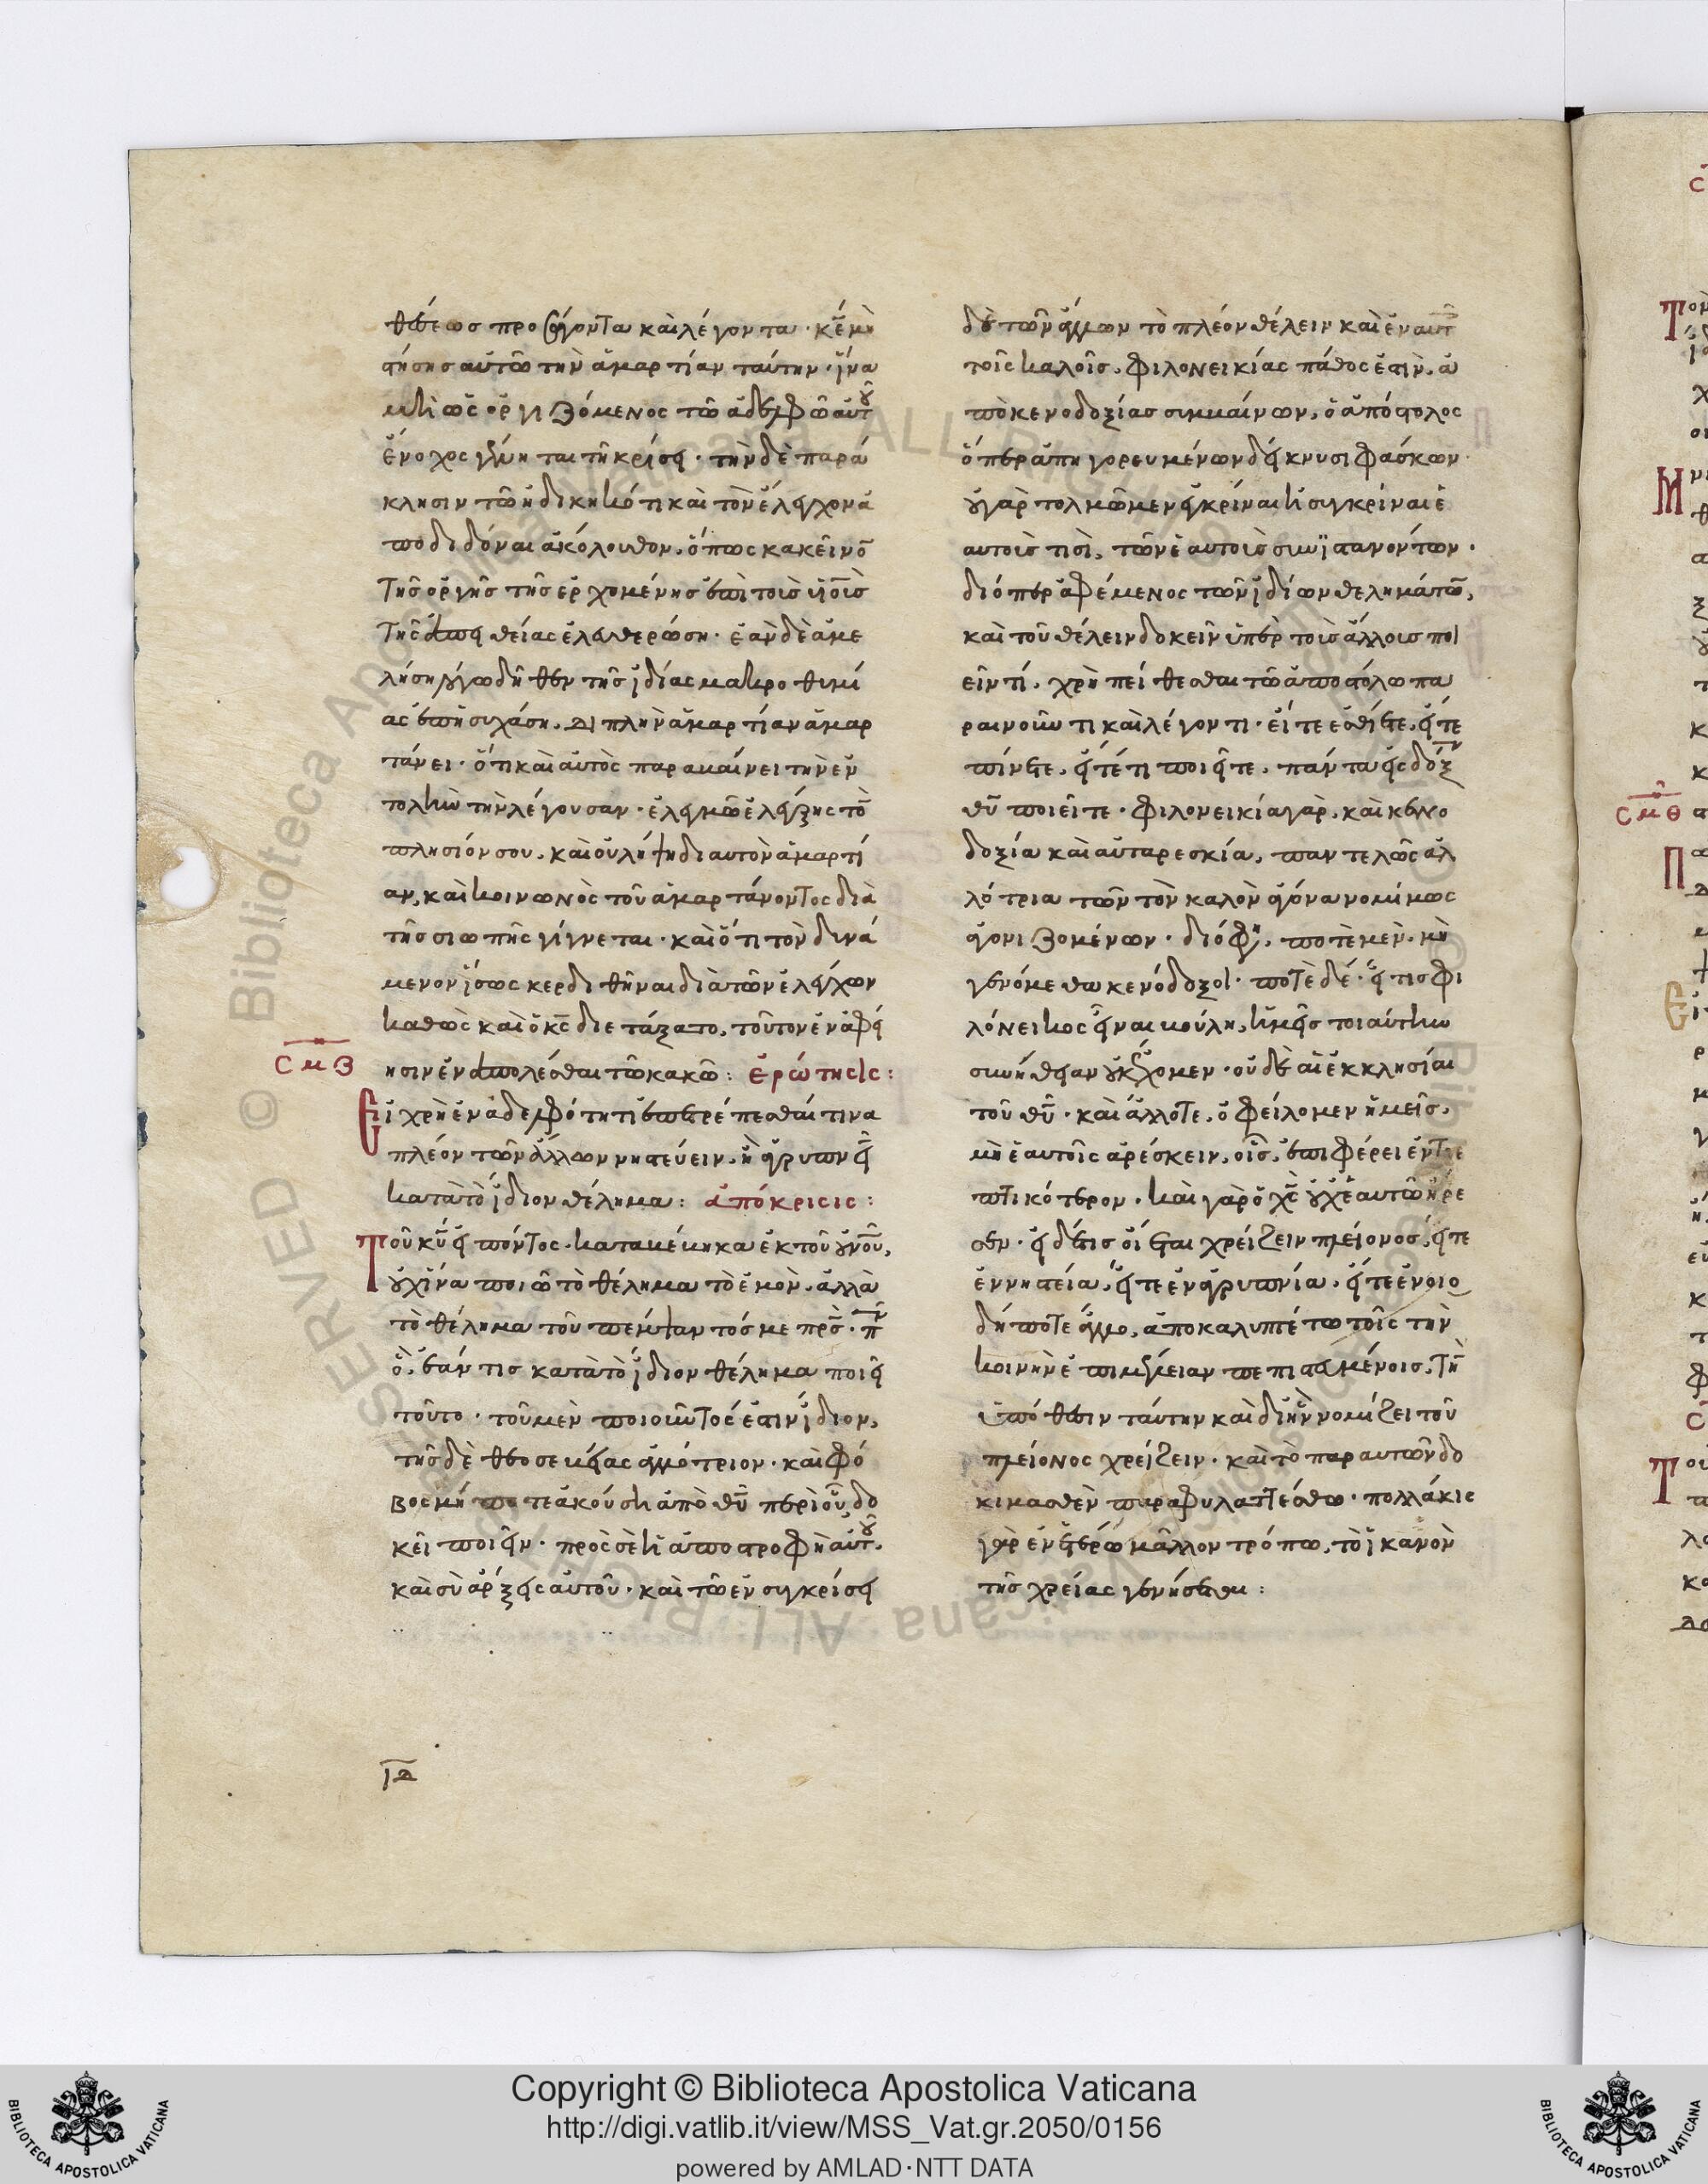 θέσεως προσάγοντα καὶ λέγοντα · κ̅ε̅ μὴ
στήσης αὐτῶ τὴν ἁμαρτίαν ταύτην · ἵνα
μὴ ὡς ὀργιζόμενος τῶ ἀδελφῶ αὐτοῦ
ἔνοχος γένηται τῆ κρίσει · τὴν δὲ παρά
κλησιν τῶ ἠδικηκότι καὶ τὸν ἔλεγχον ἀ
ποδιδόναι ἀκόλουθον, ὅπως κἀκεῖνον
τῆς ὀργῆς τῆς ἐρχομένης ἐπὶ τοὺς υἱοὺς
τῆς ἀπειθείας ἐλευθερώση · ἐὰν δὲ ἀμε
ας ἐπησυχάση, διπλὴν ἁμαρτίαν ἁμαρ
τάνει · ὅτι καὶ αὐτὸς παραβαίνει τὴν ἐν
τολὴν τὴν λέγουσαν · ἐλεγμῶ ἐλέγξεις τὸν
πλησίον σου, καὶ οὐ λήψη δι αὐτὸν ἁμαρτί
αν, καὶ κοινωνὸς τοῦ ἁμαρτάνοντος διὰ
τῆς σιωπῆς γίγνεται · καὶ ὅτι τὸν δυνά
μενον ἴσως κερδηθῆναι διὰ τῶν ἐλέγχων
καθὼς καὶ ὁ κ̅ς̅ διετάξατο, τοῦτον ἐναφεί
ησιν ἐναπολέσθαι τῶ κακῶ : ἐρώτησις :
σμβ
Εἰ χρὴ ἐν ἀδελφότητι ἐπιτρέπεσθαί τινα
πλέον τῶν ἄλλων νηστεύειν, ἢ ἀγρυπνεῖν
κατὰ τὸ ἴδιον θέλημα : ἀπόκρισις :
Τοῦ κ̅υ̅ εἰπόντος · καταβέβηκα ἐκ τοῦ οὐνοῦ,
οὐχ ἵνα ποιῶ τὸ θέλημα τὸ ἐμὸν, ἀλλὰ
τὸ θέλημα τοῦ πέμψαντός με πρς · πᾶν
ὃ ἐάν τις κατὰ τὸ ἴδιον θέλημα ποιεῖ
τοῦτο · τοῦ μὲν ποιοῦντός ἐστιν ἴδιον,
τῆς δὲ θεοσεβείας ἀλλότριον · καὶ φό
βος μή ποτε ἀκούση ἀπὸ θ̅υ̅ περὶ οὗ δο
κεῖ ποιεῖν · πρὸς σὲ ἡ ἀποστροφὴ αὐτοῦ.
καὶ σὺ ἄρξεις αὐτοῦ · καὶ τῶ ἐν συγκρίσει
ιδ
δὲ τῶν ἄλλων τὸ πλέον θέλειν καὶ ἐν αὐτ
τοῖς καλοῖς, φιλονεικίας πάθος ἐστὶν, ἀ
πὸ κενοδοξίας συμβαίνων, ὁ ἀπόστολος
ὅπερ ἀπηγορευμένων δείκνυσι φάσκων ·
οὐ γὰρ τολμῶμεν ἐγκρίναι ἢ συγκρίναι ἑ
αυτούς τισὶ, τῶν ἑαυτοὺς συνϊστανόντων ·
διόπερ ἀφέμενος τῶν ἰδίων θελημάτων,
καὶ τοῦ θέλειν δοκεῖν ὑπὲρ τοὺς ἄλλους ποι
εῖν τί, χρὴ πείθεσθαι τῶ ἀποστόλω πα
ραινοῦντι καὶ λέγοντι · εἴ τε ἐσθίετε, εἴτε
πίνετε, εἴτέ τι ποιεῖτε, πάντα εἰς δόξαν
θ̅υ̅ ποιεῖτε · φιλονεικία γὰρ, καὶ κενο
δοξία καὶ αὐταρεσκία, παντελῶς ἀλ
λότρια τῶν τὸν καλὸν ἀγῶνα νομίμως
ἀγωνιζομένων · διό φησι, ποτὲ μὲν, μὴ
γενόμεθα κενόδοξοι · ποτὲ δέ · εἴ τις φι
λόνεικος εἶναι βούλη, ἡμεῖς τοιαύτην
συνήθειαν οὐκ ἔχομεν · οὐδὲ αἱ ἐκκλησίαι
τοῦ θ̅υ̅ · καὶ ἄλλοτε, ὀφείλομεν ἡμεῖς,
μὴ ἑαυτοῖς ἀρέσκειν, οἷς, ἐπιφέρει ἐντρε
πτικότερον · καὶ γὰρ ὁ χ̅ς̅ οὐχ ἑαυτῶ ἤρε
σεν · εἰ δέ τις οἴεται χρείζειν πλείονος, εἴτε
ἐν νηστεία, εἴτε ἐν ἀγρυπνία, εἴτε ἐν οἱω
δήποτε ἄλλω, ἀποκαλυπτέτω τοῖς τὴν
κοινὴν ἐπιμέλειαν πεπιστευμένοις, τὴν
ὑπόθεσιν ταύτην καὶ δι ἣν νομίζει τοῦ
πλείονος χρείζειν · καὶ τὸ παρ αὐτῶν δο
κιμασθὲν παραφυλαττέσθω · πολλάκις
γὰρ ἐν ἑτέρω μᾶλλον τρόπω, τὸ ἱκανὸν
τῆς χρείας γενήσεται :
Copyright © Biblioteca Apostolica Vaticana
http://digi.vatlib.it/view/MSS_Vat.gr.2050/0156
powered by AMLAD·NTT DATA